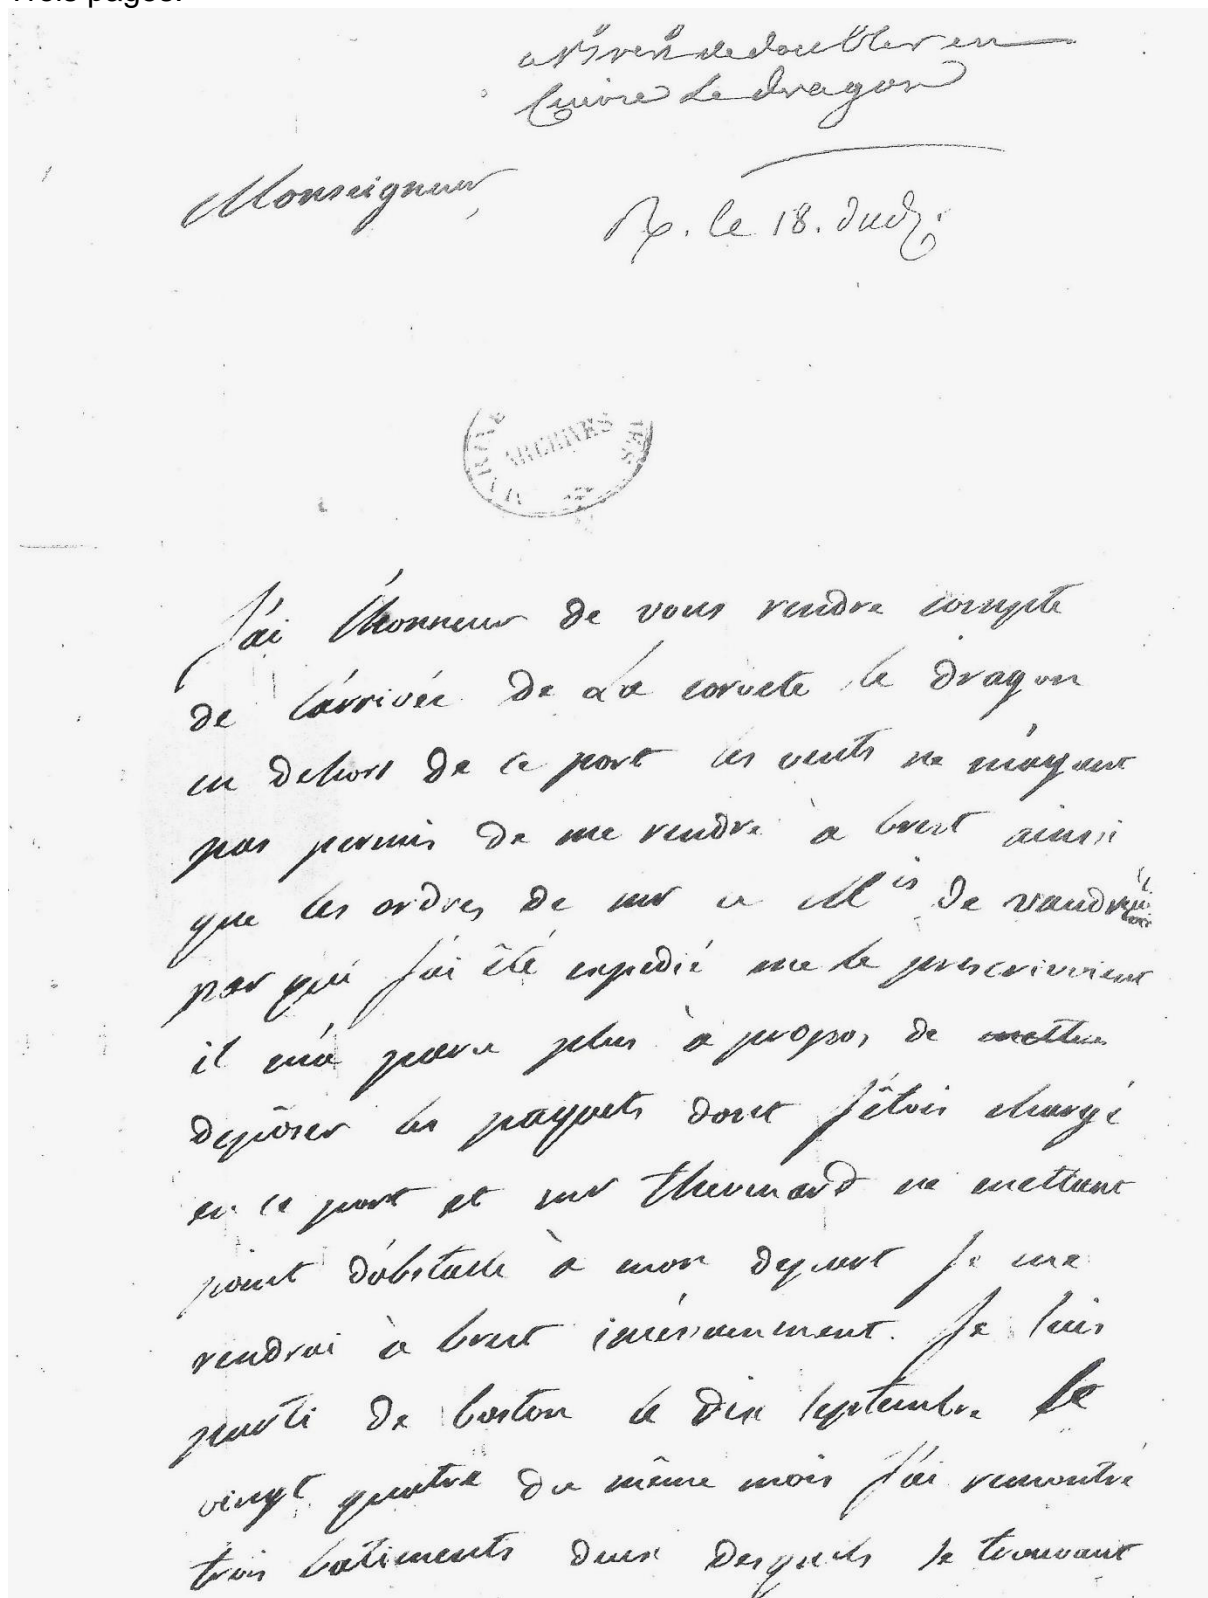 Trois pages.
de doubler en
Cuivre Le dragon
Monseigneur,
R. le 18. dud.
MARINE
ARCHIVES
J'ai l'honneur de vous rendre compte
de l'arrivée de La corvete le dragon
en dehors de ce port les vents ne m'ayant
pas permis de me rendre à brest ainsi
que les ordres de mr le Mis de vaudreuil
par qui J'ai été expedié me le prescrivoient
il m'a paru plus à propos de mettre
deposer les paquets dont J'étois chargé
en ce port et mr thevenard ne mettant
point d'obstacle à mon depart Je me
rendrai à brest incessamment. Je suis
parti de boston le dix septembre le
vingt quatre du même mois J'ai rencontré
trois batiments deux desquels se trouvant